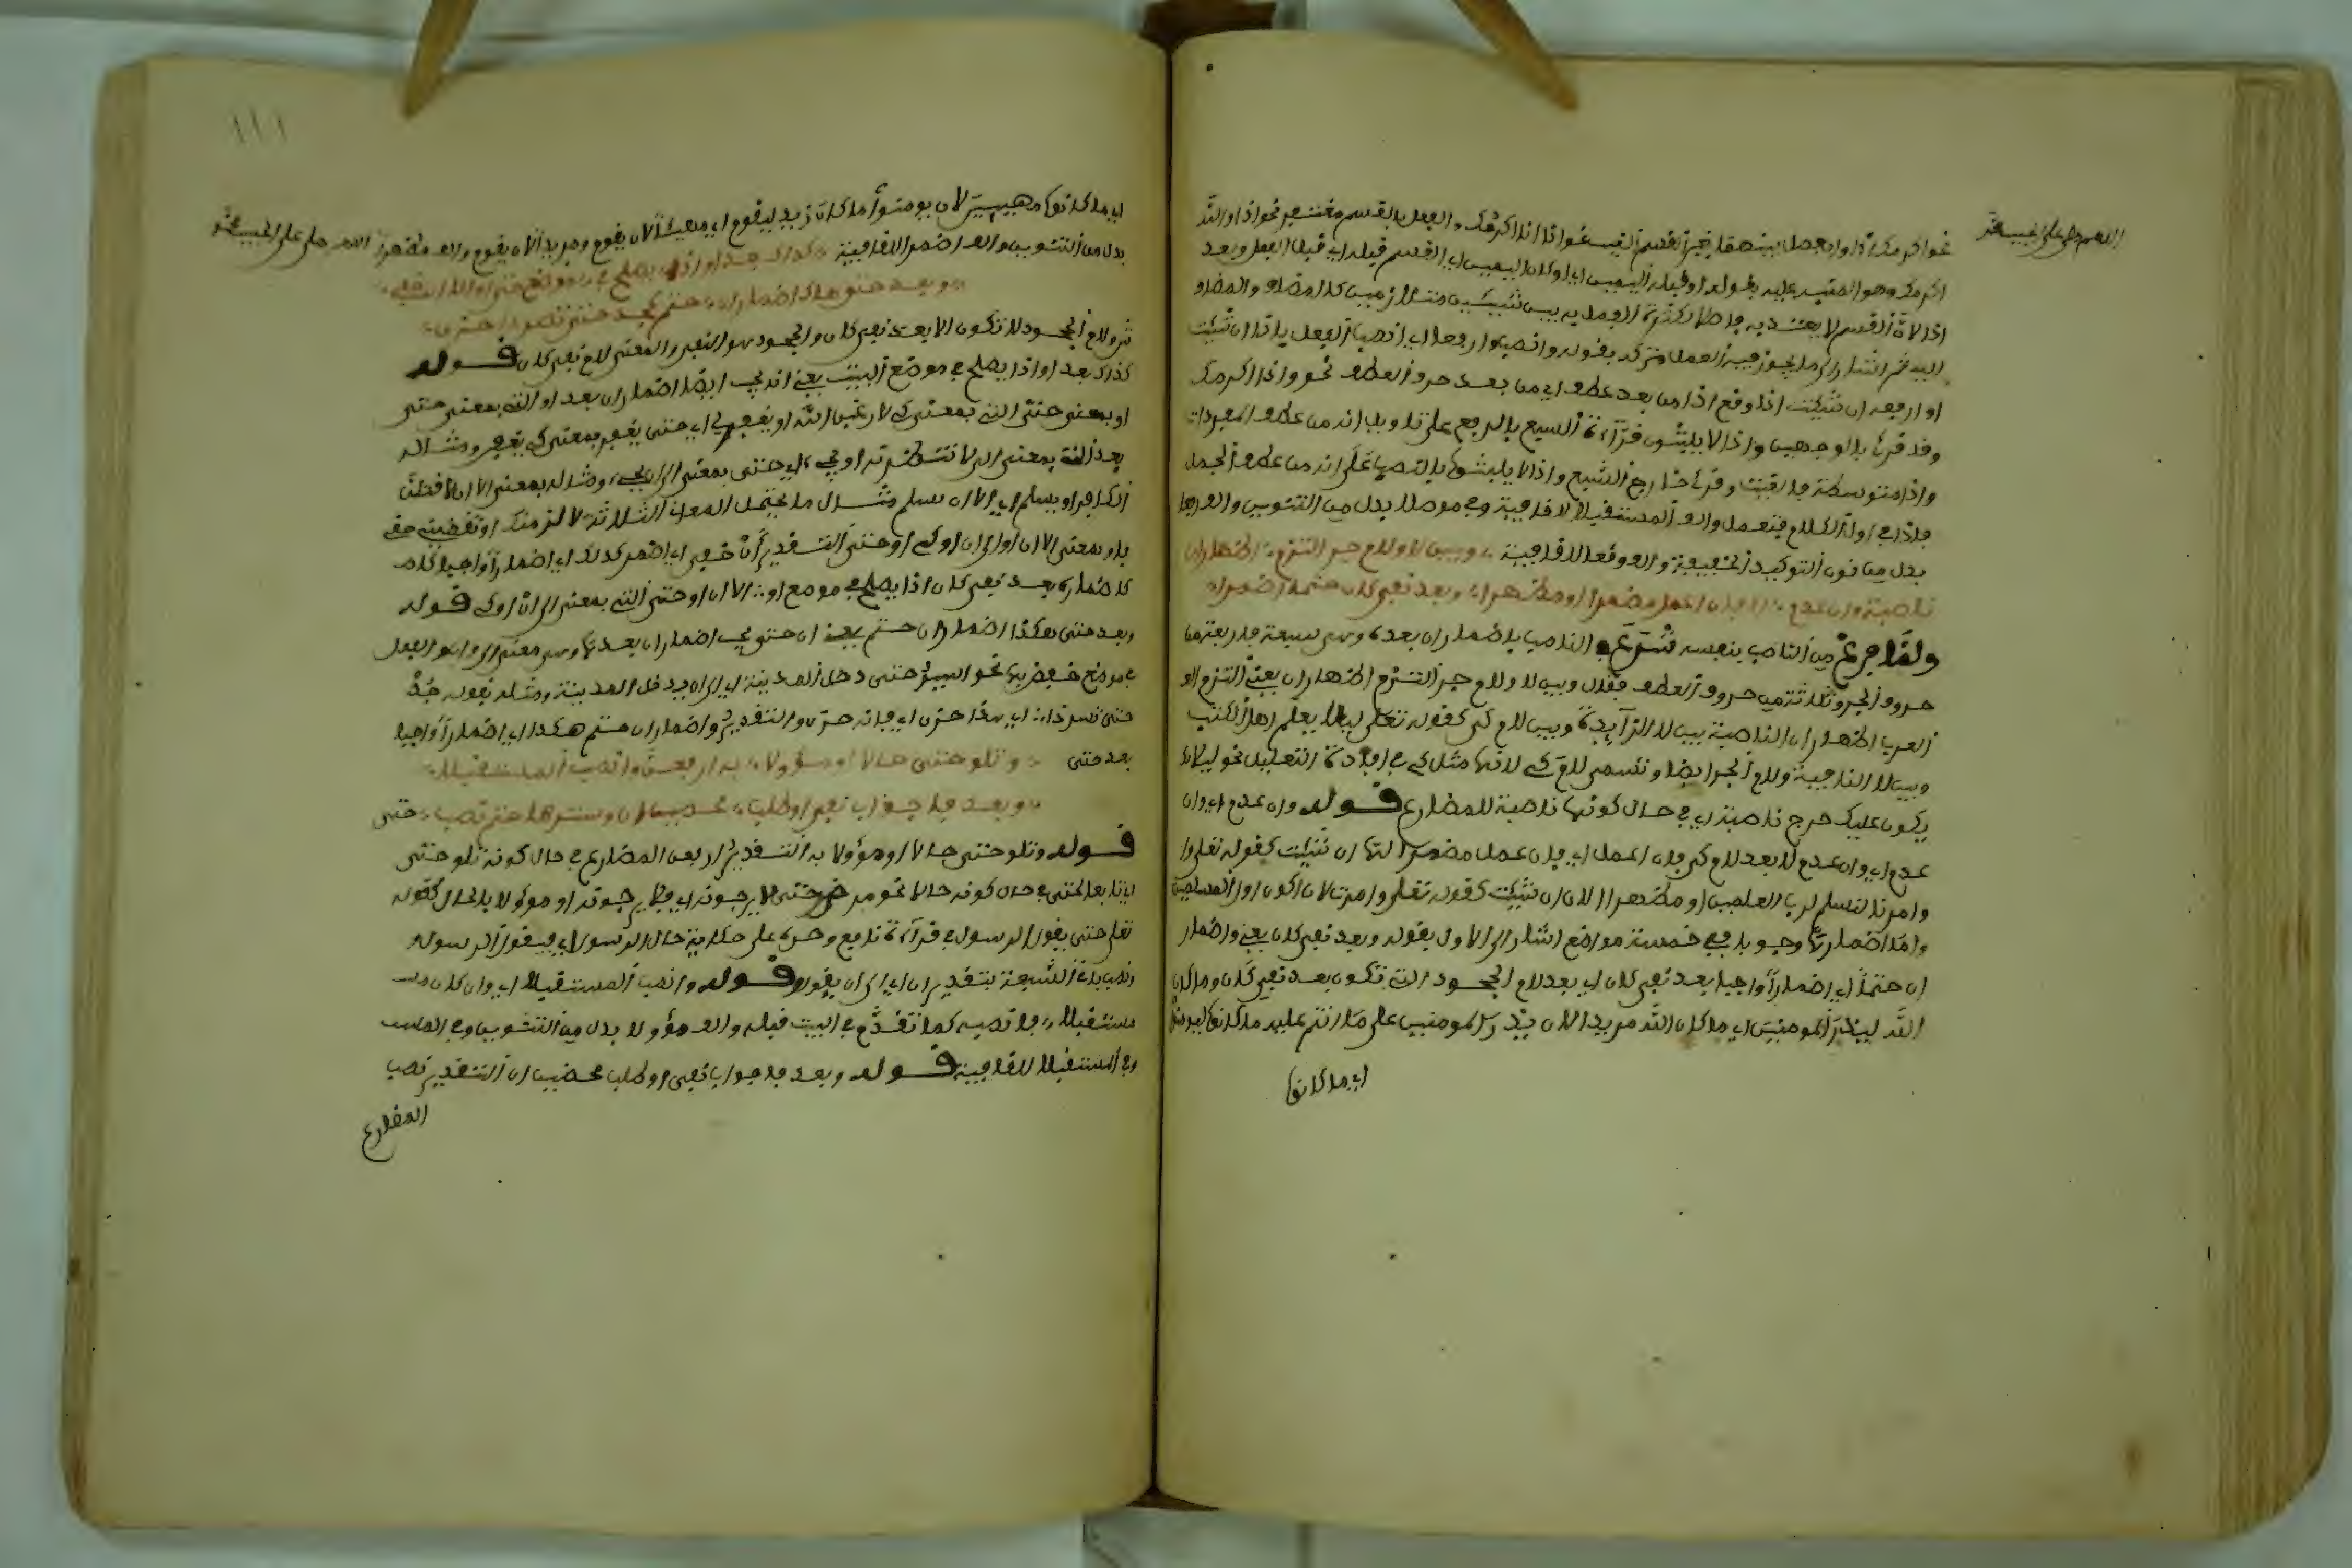 اللهم صل على الحبيب محمد
نحو اذا اكرمك او ان يفصل بينهما بغير القسم
اكرمك وهو المشهر عليه بقوله او قبله اليمين اي او كان اليمين اي القسم قبله اي قبل الفعل وبعد
اذا لان القسم لا يعتد به فاصلا لكثرته الفصل به بين شيئين متلازمين كالمضاف والمضاف
اليه ثم اشار الى ما يجوز فيه العمل وتركه بقوله وانصب وارفعا اي انصب الفعل باذا ان شئت
او ارفعه ان شئت اذا وقع اذا من بعد عطف اي من بعد حرف العطف نحو واذا اكرمك
وقد قرئ بالوجهين واذا لا يلبثون قراءة السبع بالرفع على تاويل انه من عطف المفردات
واذا متوسطة فالغيت وقرئ خارج السبع واذا لا يلبثوا بالنصب على انه من عطف الجمل
فاذا في اول الكلام فتعمل والف المستقبلا لا قافية وفي موصلا بدل من التنوين والف ارفعا
بدل من نون التوكيد الخفيفة والف وقعا للقافية وبين لا ولام جر التزم اظهار ان
ناصبة وان عدم لا فان اعمل مضمرا او مظهرا وبعد نفي كان حتما اضمرا
ولما فرغ من الناصب بنفسه شرع في الناصب باضمار ان بعده وهي سبعة فاربعة من
حروف الجر وثلاثة من حروف العطف فقال وبين لا ولام جر التزم اظهار ان يعني التزم
العرب اظهار ان الناصبة بين لا الزايدة وبين لام كي كقوله تعلى ليلا يعلم اهل الكتب
وبين لا النافية ولام الجر ايضا وتسمى لام كي لانها مثل كي في افادة التعليل نحو ليلا
يكون عليك حرج ناصبة اي في حال كونها ناصبة للمضارع قوله وان عدم اي وان
عدم اي وان عدم لا بعد لام كي فان اعمل اي فان عمل مضمرا لها ان شئت كقوله تعلى
وامرنا لنسلم لرب العلمين او مظهرا لان ان شئت كقوله تعلى وامرت لان اكون اول المسلمين
واما اضمارها وجوبا ففي خمسة مواضع اشار الى الاول بقوله وبعد نفي كان يعني واضمار
ان حتما اي اضمارا واجبا بعد نفي كان اي بعد لام الجحود التي تكون بعد نفي كان وما كان
الله ليذر المومنين اي ما كان الله مريدا لان يذر المومنين على ما انتم عليه ما كانوا ليومنوا
اي ما كانوا
١١١
اي ما كانوا لان يومنوا ما كان زيد ليقوم اي لان يقوم ومريدا لان يقوم والف مظهرا اللهم صل على الحبيب محمد
بدل من التنوين والف اضمرا للقافية كذاك بعد او اذا يصلح في موضعها حتى او الا ان خفي
وبعد حتى هكذا اضمار ان حتم كجد حتى تسر ذا حزن
ثم ولام الجحود لا تكون الا بعد نفي كان والجحود هو النفي والمعنى لام نفي كان قوله
كذاك بعد او اذا يصلح في موضع البيت يعني انه يجب ايضا اضمار ان بعد او التي بمعنى حتى
او بمعنى حتى التي بمعنى كي لارغبن الله او يغفر لي اي حتى يغفر بمعنى كي يغفر ومثال
بمعنى الى لانتظرنه او يجيء اي حتى بمعنى الى ان يجيء ومثاله بمعنى الا ان لاقتلن
الكافر او يسلم اي الا ان يسلم مثال ما يحتمل المعاني الثلاثة لالزمنك او تقضيني حقي
فاو بمعنى الا ان او الى ان او كي او حتى التقدير ان خفي اي اضمر كذلك اي اضمارا واجبا كما
كاضماره بعد نفي كان اذا يصلح في موضع او الا ان او حتى التي بمعنى الى ان او كي قوله
وبعد حتى هكذا اضمار ان حتم يعني ان حتى يجب اضمار ان بعدها
في موضع خفض بها نحو اسير حتى دخل المدينة اي الى ان يدخل المدينة ومثله بقوله جد
حتى تسر ذا اي هذا حزن اي فانه حزن والتقدير واضمار ان حتم هكذا اي اضمارا واجبا
بعد حتى وتلو حتى حالا او مؤولا به ارفعن وانصب المستقبلا
وبعد فا جواب نفي او طلب محضين ان وسترها حتم نصب حتى
قوله وتلو حتى حالا او مؤولا به التقدير ارفعن المضارع في حال كونه تلو حتى
اي تابعا لحتى في حال كونه حالا نحو مرض حتى لا يرجونه اي فلا يرجونه او مؤولا بالحال كقوله
تعلى حتى يقول الرسول في قراءة نافع وحده على حكاية حال الرسول اي فيقول الرسول
ونصب باقي السبعة بتقدير ان اي الى ان يقول قوله وانصب المستقبلا اي وان كان
مستقبلا فانصبه كما تقدم في البيت قبله والف مؤولا بدل من التنوين
وفي المستقبلا للقافية قوله وبعد فا جواب نفي او طلب محضين ان التقدير نصب
المضارع